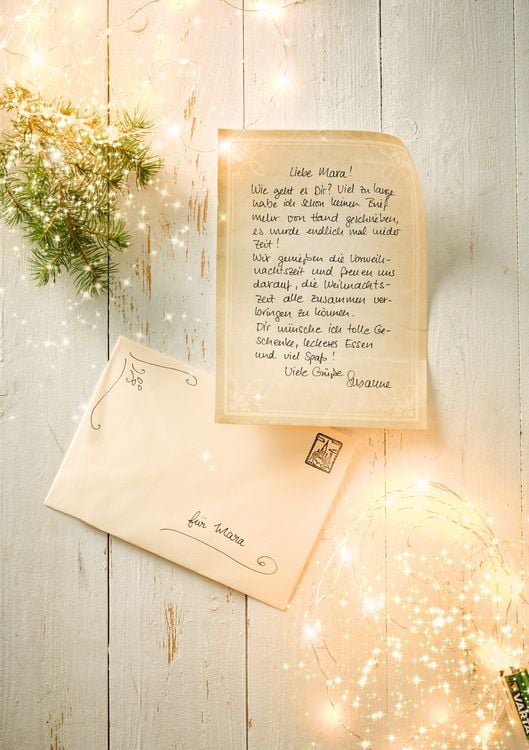 Liebe Mara!
Wie geht es Dir? Viel zu lange
habe ich schon keinen Brief
mehr von Hand geschrieben,
es wurde endlich mal wieder
Zeit!
Wir genießen die Vorweih-
nachtszeit und freuen uns
darauf, die Weihnachts-
Zeit alle zusammen ver-
bringen zu können.
Dir wünsche ich tolle Ge-
schenke, leckeres Essen
und viel Spaß!
Viele Grüße
Susanne
für Mara
VARTA